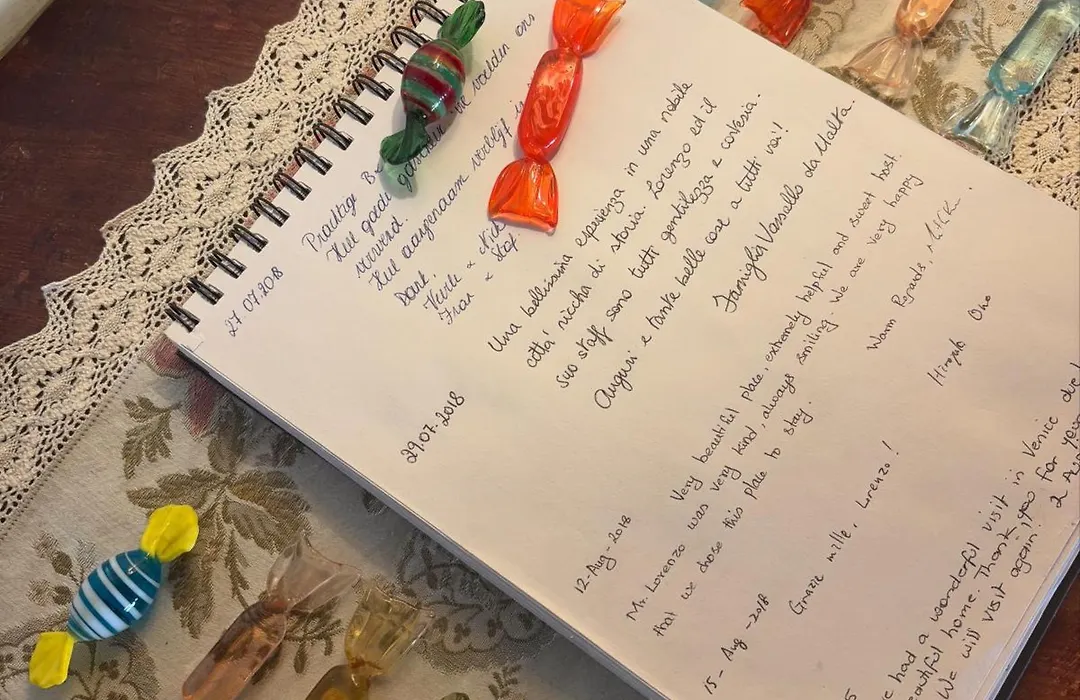 27.07.2018
Prachtig
Het
verrend.
Het aangenaam verblijf
Dank,
Veerle &
Fran & Stef.
gastheer. We voelden ons
29.07.2018
Una bellissima esperienza in una nobile
città riccha di storia. Lorenzo ed il
suo staff sono tutti gentilezza e cortesia.
Auguri e tante belle cose a tutti voi!
Famiglia Vassallo da Malta.
12-Aug-2018
Very beautiful place, extremely helpful and sweet host.
Mr. Lorenzo was very kind, always smiling. We are very happy
that we chose this place to stay.
Warm Regards,
15-Aug-2018
Grazie mille, Lorenzo!
Hiroyuki Ono
had a wonderful visit in Venice due
beautiful home. Thank you for your
We will visit again,